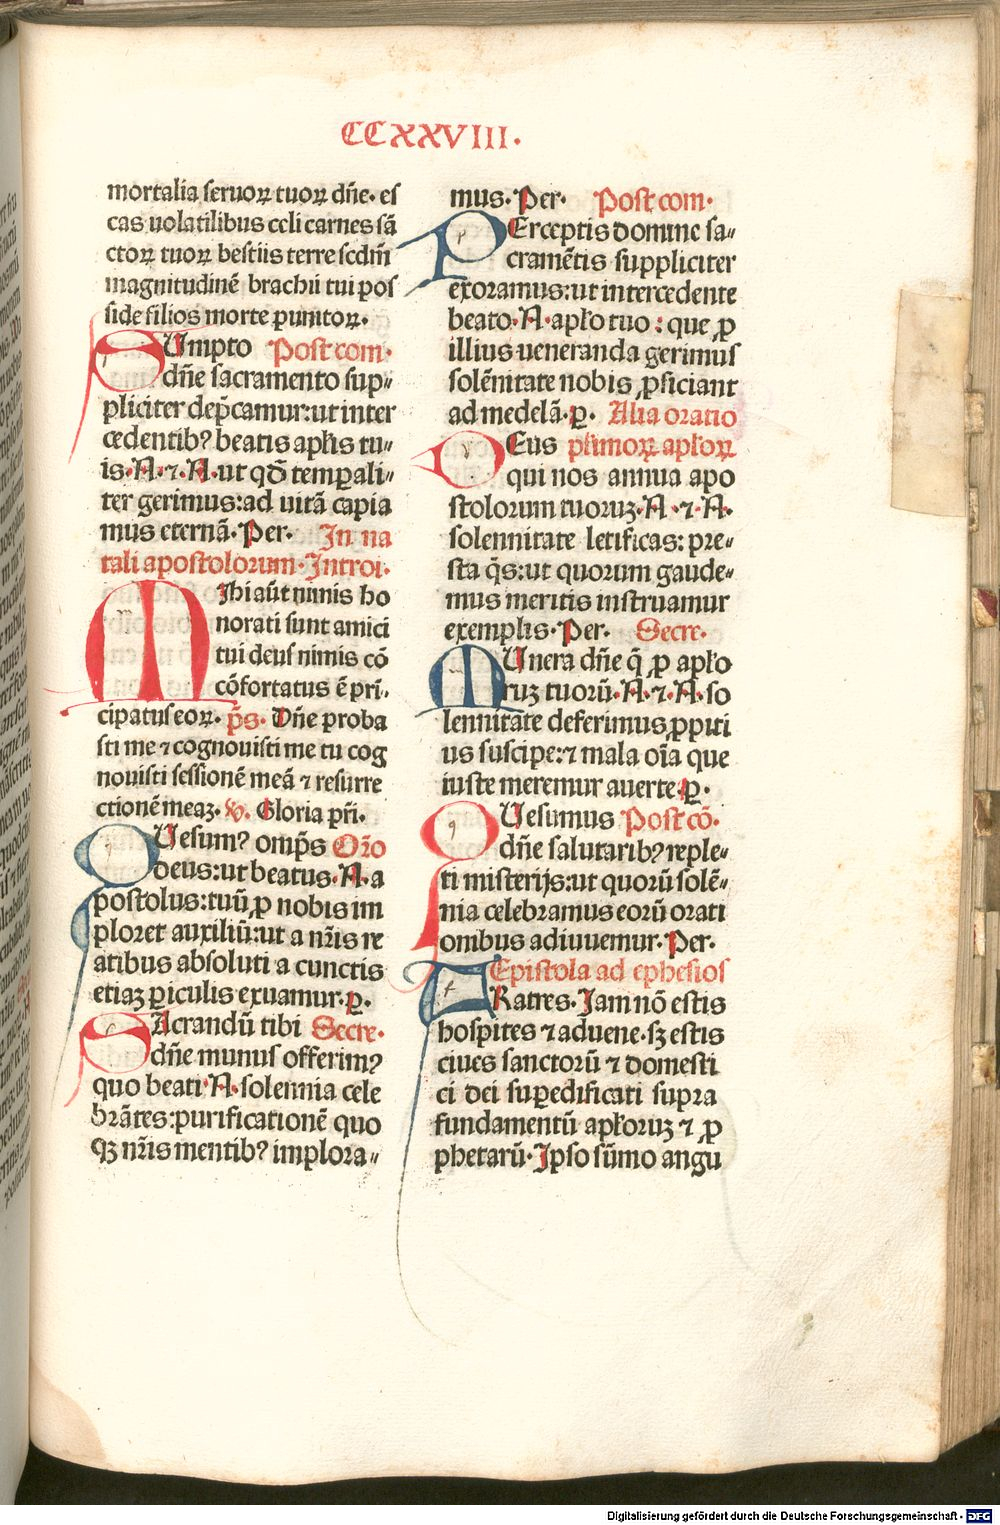 CCXXVIII.
mortalia seruoꝝ tuoꝝ dñe· es
cas uolatilibus celi carnes sã
ctoꝝ tuoꝝ bestiis terre scdm̃
magnitudinẽ brachii tui pos
side filios morte ꝑunitoꝝ·
SUmpto Post com·
dñe sacramento sup⸗
pliciter dep̃camur:ut inter
cedentibꝰ beatis apl̃is tu⸗
is·A·⁊·A·ut qõ temꝑali⸗
ter gerimus:ad uitã capia
mus eternã·Per· In na
tali apostolorum·Introi·
MIhi aũt nimis ho
norati sunt amici
tui deus nimis cõ
cõfortatus ẽ pri⸗
cipatus eoꝝ· p̃s· Dñe proba
sti me ⁊ cognouisti me tu cog
nouisti sessionẽ meã ⁊ resurre
ctionẽ meaꝫ· ꝟ. Gloria pr̃i·
QUesumꝰ omp̃s Orõ
deus:ut beatus·A·a
postolus:tuũ ꝓ nobis im
ploret auxiliũ:ut a nr̃is re
atibus absoluti a cunctis
etiaꝫ ꝑiculis exuamur·ꝑ·
SAcrandũ tibi Secre·
dñe munus offerimꝰ
quo beati·A·solennia cele
brãtes:purificationẽ quo
qꝫ nr̃is mentibꝰ implora⸗
mus·Per· Post com·
PErceptis domine sa⸗
cramẽtis suppliciter
exoramus:ut intercedente
beato·A·apl̃o tuo : que ꝓ
illius ueneranda gerimus
solẽnitate nobis ꝓficiant
ad medelã·ꝑ· Alia oratio
DEus plũmoꝝ apl̃oꝝ
qui nos annua apo
stolorum tuoruꝫ·A·⁊·A·
solennitate letificas: pre⸗
sta q̃s:ut quorum gaude⸗
mus meritis instruamur
exemplis·Per· Secre·
MUnera dñe q̃ ꝓ apl̃o
ruꝫ tuorũ·A·⁊·A·so
lennitate deferimus ꝓpiti
us suscipe:⁊ mala oĩa que
iuste meremur auerte·ꝑ·
QUesumus Post cõ·
dñe salutaribꝰ reple⸗
ti misterijs:ut quorũ solẽ⸗
nia celebramus eorũ orati
onibus adiuuemur·Per·
Epistola ad ephesios
FRatres·Jam nõ estis
hospites ⁊ aduene·sꝫ estis
ciues sanctorũ ⁊ domesti
ci dei suꝑedificati supra
fundamentũ apl̃oruꝫ ⁊ ꝓ
phetarũ·Ipso sũmo angu
Digitalisierung gefördert durch die Deutsche Forschungsgemeinschaft - DFG